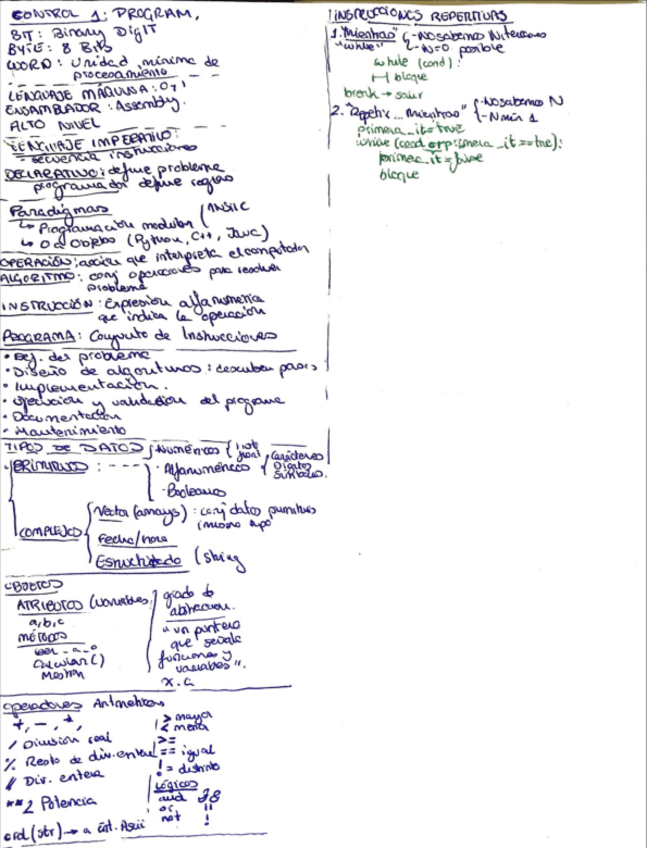 CONTROL 1: PROGRAM,
BIT: Binary DigIT
BYTE: 8 BITS
WORD: Unidad mínima de
procesamiento
LENGUAJE MÁQUINA: 0 y 1
ENSAMBLADOR: Assembly.
ALTO NIVEL
LENGUAJE IMPERATIVO:
secuencia instrucciones
DECLARATIVO: define problema
programador define reglas
Paradigmas
↳ Programación modular (ANSI C
↳ O a Objetos (Python, C++, Java)
OPERACIÓN: acción que interpreta el computador
ALGORITMO: conj operaciones para resolver
problema
INSTRUCCIÓN: Expresión alfanumérica
que indica la operación
PROGRAMA: Conjunto de Instrucciones
• Def. del problema
• Diseño de algoritmos: describen pasos
• Implementación.
• Ejecución y validación del programa
• Documentación
• Mantenimiento
TIPOS DE DATOS
PRIMITIVOS:
· Numéricos { int float
· Alfanuméricos { Carácteres Dígitos Símbolos.
· Booleanos
COMPLEJOS
Vector (arrays): conj datos primitivos
(mismo tipo
Fecha/hora
Estructurado (string
OBJETOS
ATRIBUTOS (variables)
a, b, c
MÉTODOS
Calcular()
grado de
abstracción.
"un puntero
que señala
funciones y
variables".
x.a
operadores Aritméticos
+, -, *,
/ División real
% Resto de div. entera
// Div. entera
**2 Potencia
ord(str) → a int. Ascii
> mayor
< menor
>=
== igual
!= distinto
LÓGICOS
and &&
or ||
not !
INSTRUCCIONES REPETITIVAS
1. "Mientras" { - No sabemos N iteraciones
"while" - N=0 posible
while (cond):
bloque
break → salir
2. "Repetir... mientras" { - No sabemos N
- N min 1
primera_it = true
while (cond or primera_it == true):
primera_it = false
bloque